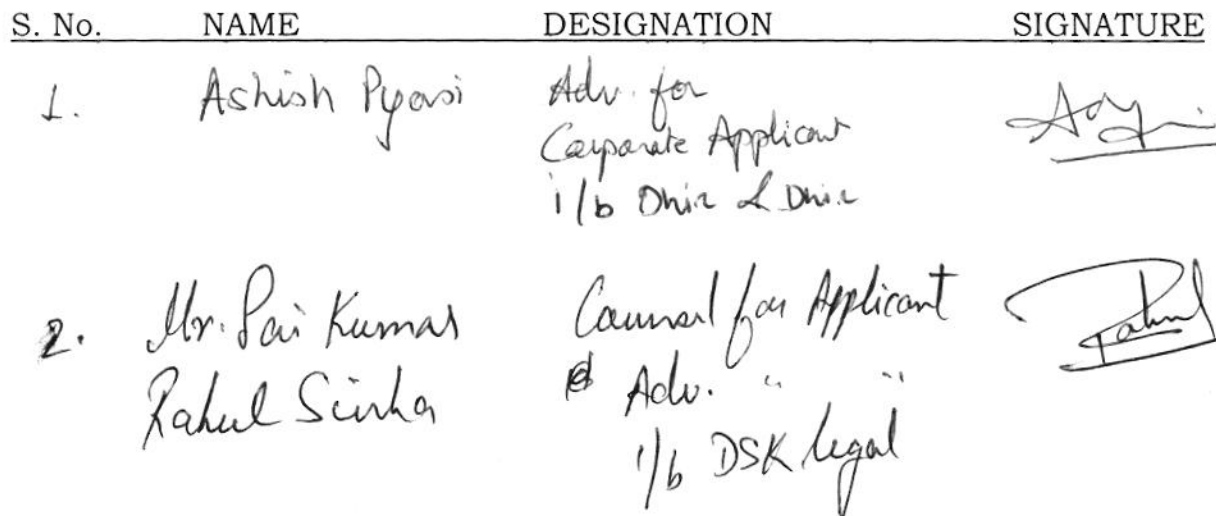 S. No. NAME DESIGNATION SIGNATURE
1. Ashish Pyasi Adv. for
Corporate Applicant
i/b Dhir & Dhir
2. Mr. Sai Kumar Counsel for Applicant
Rahul Sinha Adv. " "
i/b DSK legal
Rahul